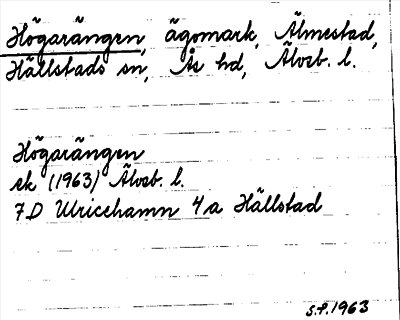 Högarängen, ägomark, Älmestad,
Hällstads sn, Ås hd, Älvsb. l.
Högarängen
ek (1963) Älvsb. l.
7D Ulricehamn 4a Hällstad
S.F. 1963